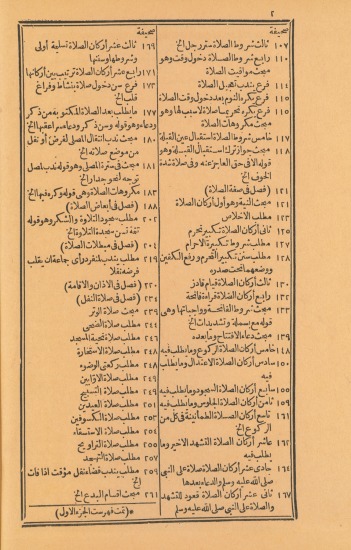 ٢
صحيفة
١٠٧ ثالث شروط الصلاة ستر رجل الخ
١١٠ رابع شروط الصلاة دخول وقت وهو
مبحث مواقيت الصلاة
١١٤ فرع يندب تعجيل الصلاة
١١٥ فرع يكره النوم بعد دخول وقت الصلاة
١١٥ فرع يكره تحريما صلاة لا سبب لها وهو
مبحث مكروهات الصلاة
١١٧ خامس شروط الصلاة استقبال عين القبلة
١١٨ مبحث جواز ترك استقبال القبلة وهو
قوله الا في حق العاجز عنه وفي صلاة شدة
الخوف الخ
١٢١ (فصل في صفة الصلاة)
١٢١ مبحث النية وهو أول أركان الصلاة
١٢٣ مطلب الاخلاص
١٢٥ ثاني أركان الصلاة تكبير تحرم
١٢٦ مطلب شروط تكبيرة الاحرام
١٢٨ مطلب سنن تكبير التحرم ورفع الكفين
ووضعهما تحت صدره
١٣٠ ثالث أركان الصلاة قيام قادر
١٣٤ رابع أركان الصلاة قراءة فاتحة
١٣٥ مبحث شروط الفاتحة وواجباتها وهي
قوله مع بسملة وتشديدات الخ
١٣٩ مبحث دعاء الافتتاح وما بعده
١٤٨ خامس أركان الصلاة الركوع وما يطلب فيه
١٥٠ سادس أركان الصلاة الاعتدال وما يطلب
فيه
١٥٥ سابع أركان الصلاة السجود وما يطلب فيه
١٥٩ ثامن أركان الصلاة الجلوس وما يطلب فيه
١٦١ تاسع أركان الصلاة الطمأنينة في كل من
الركوع الخ
١٦٢ عاشر أركان الصلاة التشهد الاخير وما
يطلب فيه
١٦٤ حادى عشر أركان الصلاة صلاة على النبي
صلى الله عليه وسلم والدعاء بعدها
١٦٧ ثانى عشر أركان الصلاة قعود للتشهد
والصلاة على النبي صلى الله عليه وسلم
صحيفة
١٦٩ ثالث عشر أركان الصلاة تسليمة أولى
وشروطها وسننها
١٧١ رابع عشر أركان الصلاة ترتيب بين أركانها
١٧٣ فرع سن دخول صلاة بنشاط وفراغ
قلب الخ
١٧٧ ما يطلب بعد الصلاة المكتوبة من ذكر
ودعاء وهو قوله وسن ذكر ودعاء سرا عقبها الخ
١٨١ مبحث ندب انتقال المصلى لفرض أو نفل
من موضع صلاته الخ
١٨١ مبحث في سترة المصلى وهو قوله ندب لمصل
توجه لنحو جدار الخ
١٨٣ مكروهات الصلاة وهي قوله وكره فيها الخ
١٨٨ (فصل في أبعاض الصلاة)
٢٠٢ مطلب سجود التلاوة والشكر وهو قوله
تتمة تسن سجدة التلاوة الخ
٢٠٤ (فصل في مبطلات الصلاة)
٢١٩ مطلب يندب لمنفرد رأى جماعة ان يقلب
فرضه نفلا
٢٢٠ (فصل في الاذان والاقامة)
٢٣٤ (فصل في صلاة النفل)
٢٣٩ مبحث صلاة الوتر
٢٤٤ مطلب صلاة الضحى
٢٤٦ مطلب صلاة تحية المسجد
٢٤٨ مطلب صلاة الاستخارة
٢٤٨ مطلب ركعتى الوضوء
٢٤٩ مطلب صلاة الاوابين
٢٤٩ مطلب صلاة التسبيح
٢٥١ مطلب صلاة العيدين
٢٥٣ مطلب صلاة الكسوفين
٢٥٤ مطلب صلاة الاستسقاء
٢٥٥ مطلب صلاة التراويح
٢٥٧ مطلب صلاة التهجد
٢٥٩ مطلب يندب قضاء نفل مؤقت اذا فات
الخ
٢٦١ مبحث أقسام البدع الخ
*(تمت فهرست الجزء الاول)*